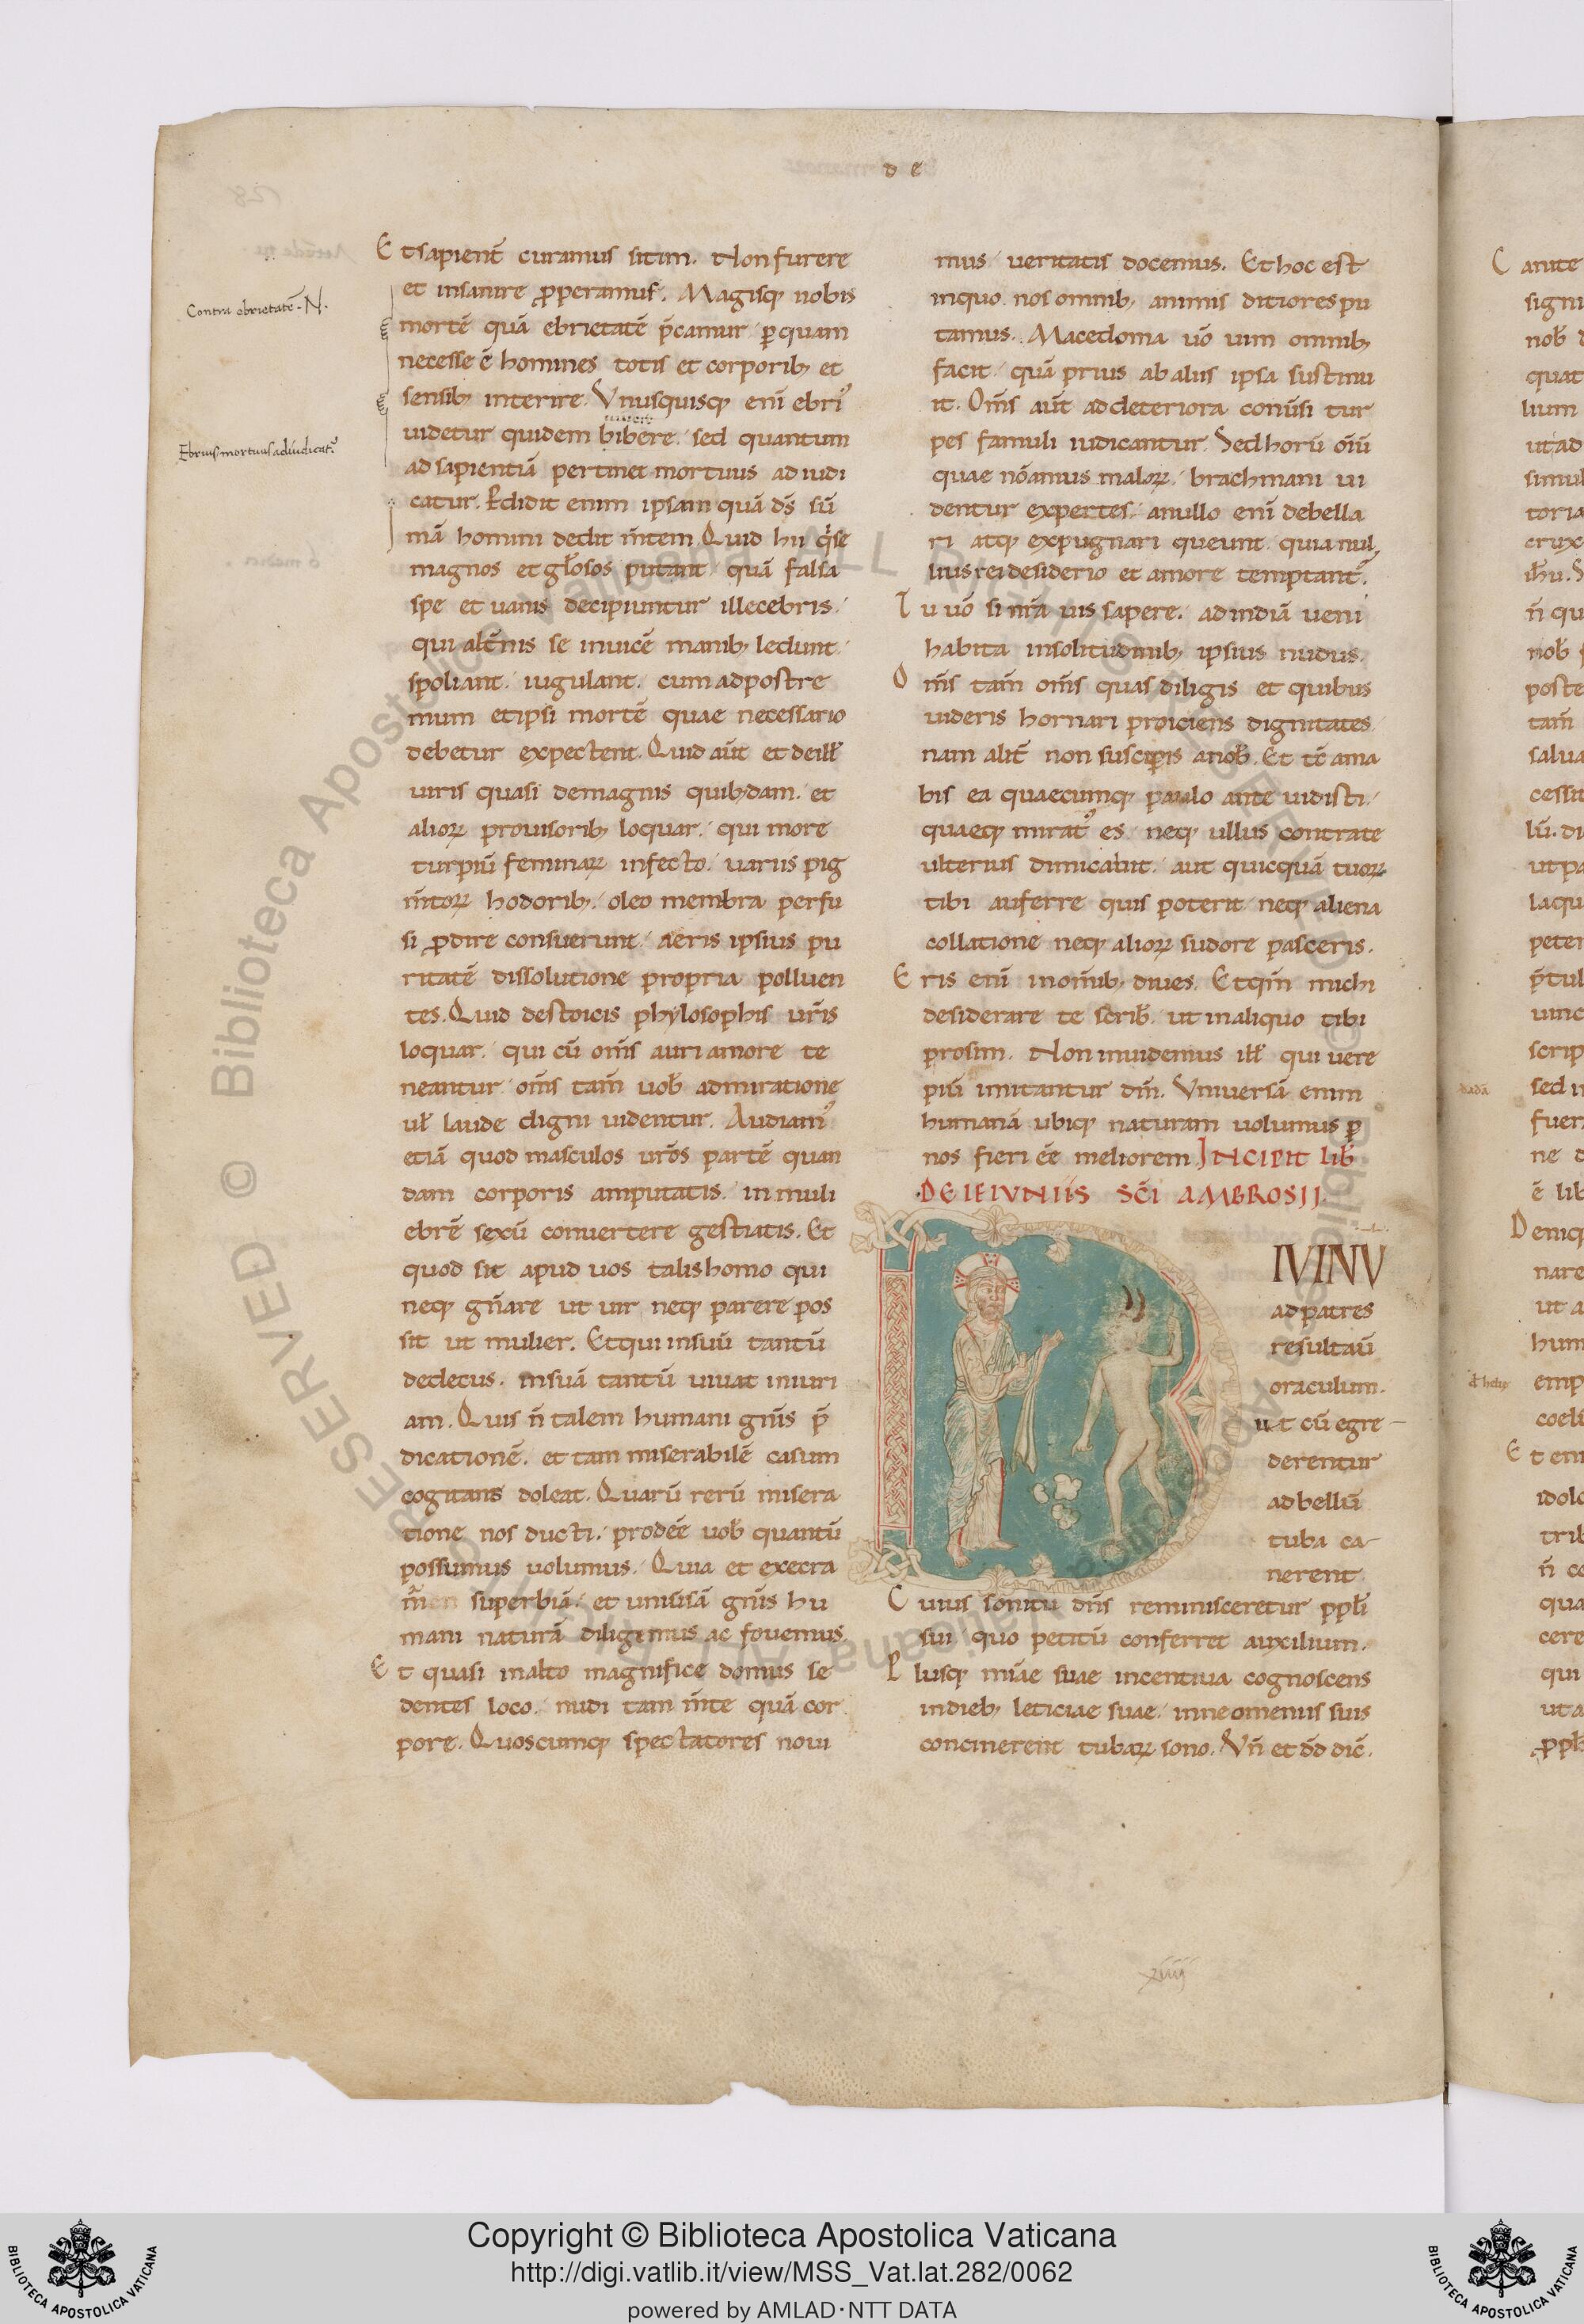 d e
Et sapient̄ curamus sitim. Non furere
et insanire ꝓperamus. Magisq; nobis
mortē quā ebrietatē p̄camur ꝑ quam
necesse ē homines totis et corporib; et
sensib; interire. Vnusquisq; enī ebri᾽
uidetur quidem bibere. sed quantum
ad sapientiā pertinet mortuus adiudi
catur. Pdidit enim ipsam quā ds̄ sū
mā homini dedit m̄tem. Quid hii q̇ se
magnos et gl̄osos putant quā falsa
spe et uanis decipiuntur illecebris.
qui alt̄nis se inuicē manib; ledunt.
spoliant. iugulant. cum ad postre
mum et ipsi mortē quae necessario
debetur expectent. Quid aūt et de ill̄
uiris quasi de magnis quib;dam. et
alioꝝ prouisorib; loquar. qui more
turpiū feminaꝝ infecto. uariis pig
m̄toꝝ hodorib;. oleo membra perfu
si ꝓdire consuerunt. aeris ipsius pu
ritatē dissolutione propria polluen
tes. Quid de stoicis phylosophis ur̄is
loquar. qui cū om̄s auri amore te
neantur om̄s tam̄ uob̄ admiratione
ul̄ laude digni uidentur. Audiam᾽
etiā quod masculos ur̄os partē quan
dam corporis amputatis. in muli
ebrē sexū conuertere gestiatis. Et
quod sit apud uos talis homo qui
neq; gn̄are ut uir neq; parere pos
sit ut mulier. Et qui in suū tantū
dedecus. in suā tantū uiuat iniuri
am. Quis n̄ talem humani gn̄is p̄
dicationē. et tam miserabilē casum
cogitans doleat. Quarū rerū misera
tione nos ducti. prodēe uob̄ quantū
possumus uolumus. Quia et execra
m̄ superbiā. et uniūsā gn̄is hu
mani naturā diligimus ac fouemus
Et quasi in alto magnifice domus se
dentes loco. nudi tam m̄te quā cor
pore. Quoscumq; spectatores noui
Contra ebrietatē. N.
Ebrius mortuus adiudicat᾽
mus ueritatis docemus. Et hoc est
in quo nos omnib; animis ditiores pu
tamus. Macedonia uō uim omnib;
facit. quā prius ab aliis ipsa sustinu
it. Om̄s aūt ad deteriora conūsi tur
pes famuli iudicantur. Sed horū oīū
quae nōamus maloꝝ. brachmani ui
dentur expertes. a nullo enī debella
ri atq; expugnari queunt. quia nul
lius rei desiderio et amore temptant᾽.
Tu uō si nr̄a uis sapere. ad indiā ueni
habita in solitudinib; ipsius nudus.
Om̄s tam̄ om̄s quas diligis et quibus
uideris hornari proiciens dignitates
nam alit̄ non susciperis a nob̄. Et tc̄ ama
bis ea quaecumq; paulo ante uidisti.
quaeq; mirat᾽ es. neq; ullus contra te
ulterius dimicabit. aut quicquā tuoꝝ
tibi auferre quis poterit neq; aliena
collatione neq; alioꝝ sudore pasceris.
Eris enī in om̄ib; diues. Et qm̄ michi
desiderare te scrib̄. ut in aliquo tibi
prosim. Non inuidemus ill̄ qui uere
piū imitantur dm̄. Vniuersā enim
humanā ubiq; naturam uolumus ꝑ
nos fieri ēe meliorem INCIPIT LIB̄
DE IEIVNIIS SC̄I AMBROSII
IVINV
ad patres
resultaū
oraculum.
ut cū egre
derentur
ad bellū
tuba ca
nerent
Cuius sonitu dn̄s reminisceretur ppl̄i
sui quo petitū conferret auxilium.
Plusq; mīae suae incentiua cognoscens
in dieb; leticiae suae. in neomeniis suis
concinerent tubaꝝ sono. Vn̄ et dd̄ dic̄.
xiiii
Copyright © Biblioteca Apostolica Vaticana
http://digi.vatlib.it/view/MSS_Vat.lat.282/0062
powered by AMLAD·NTT DATA
BIBLIOTECA APOSTOLICA VATICANA
BIBLIOTECA APOSTOLICA VATICANA